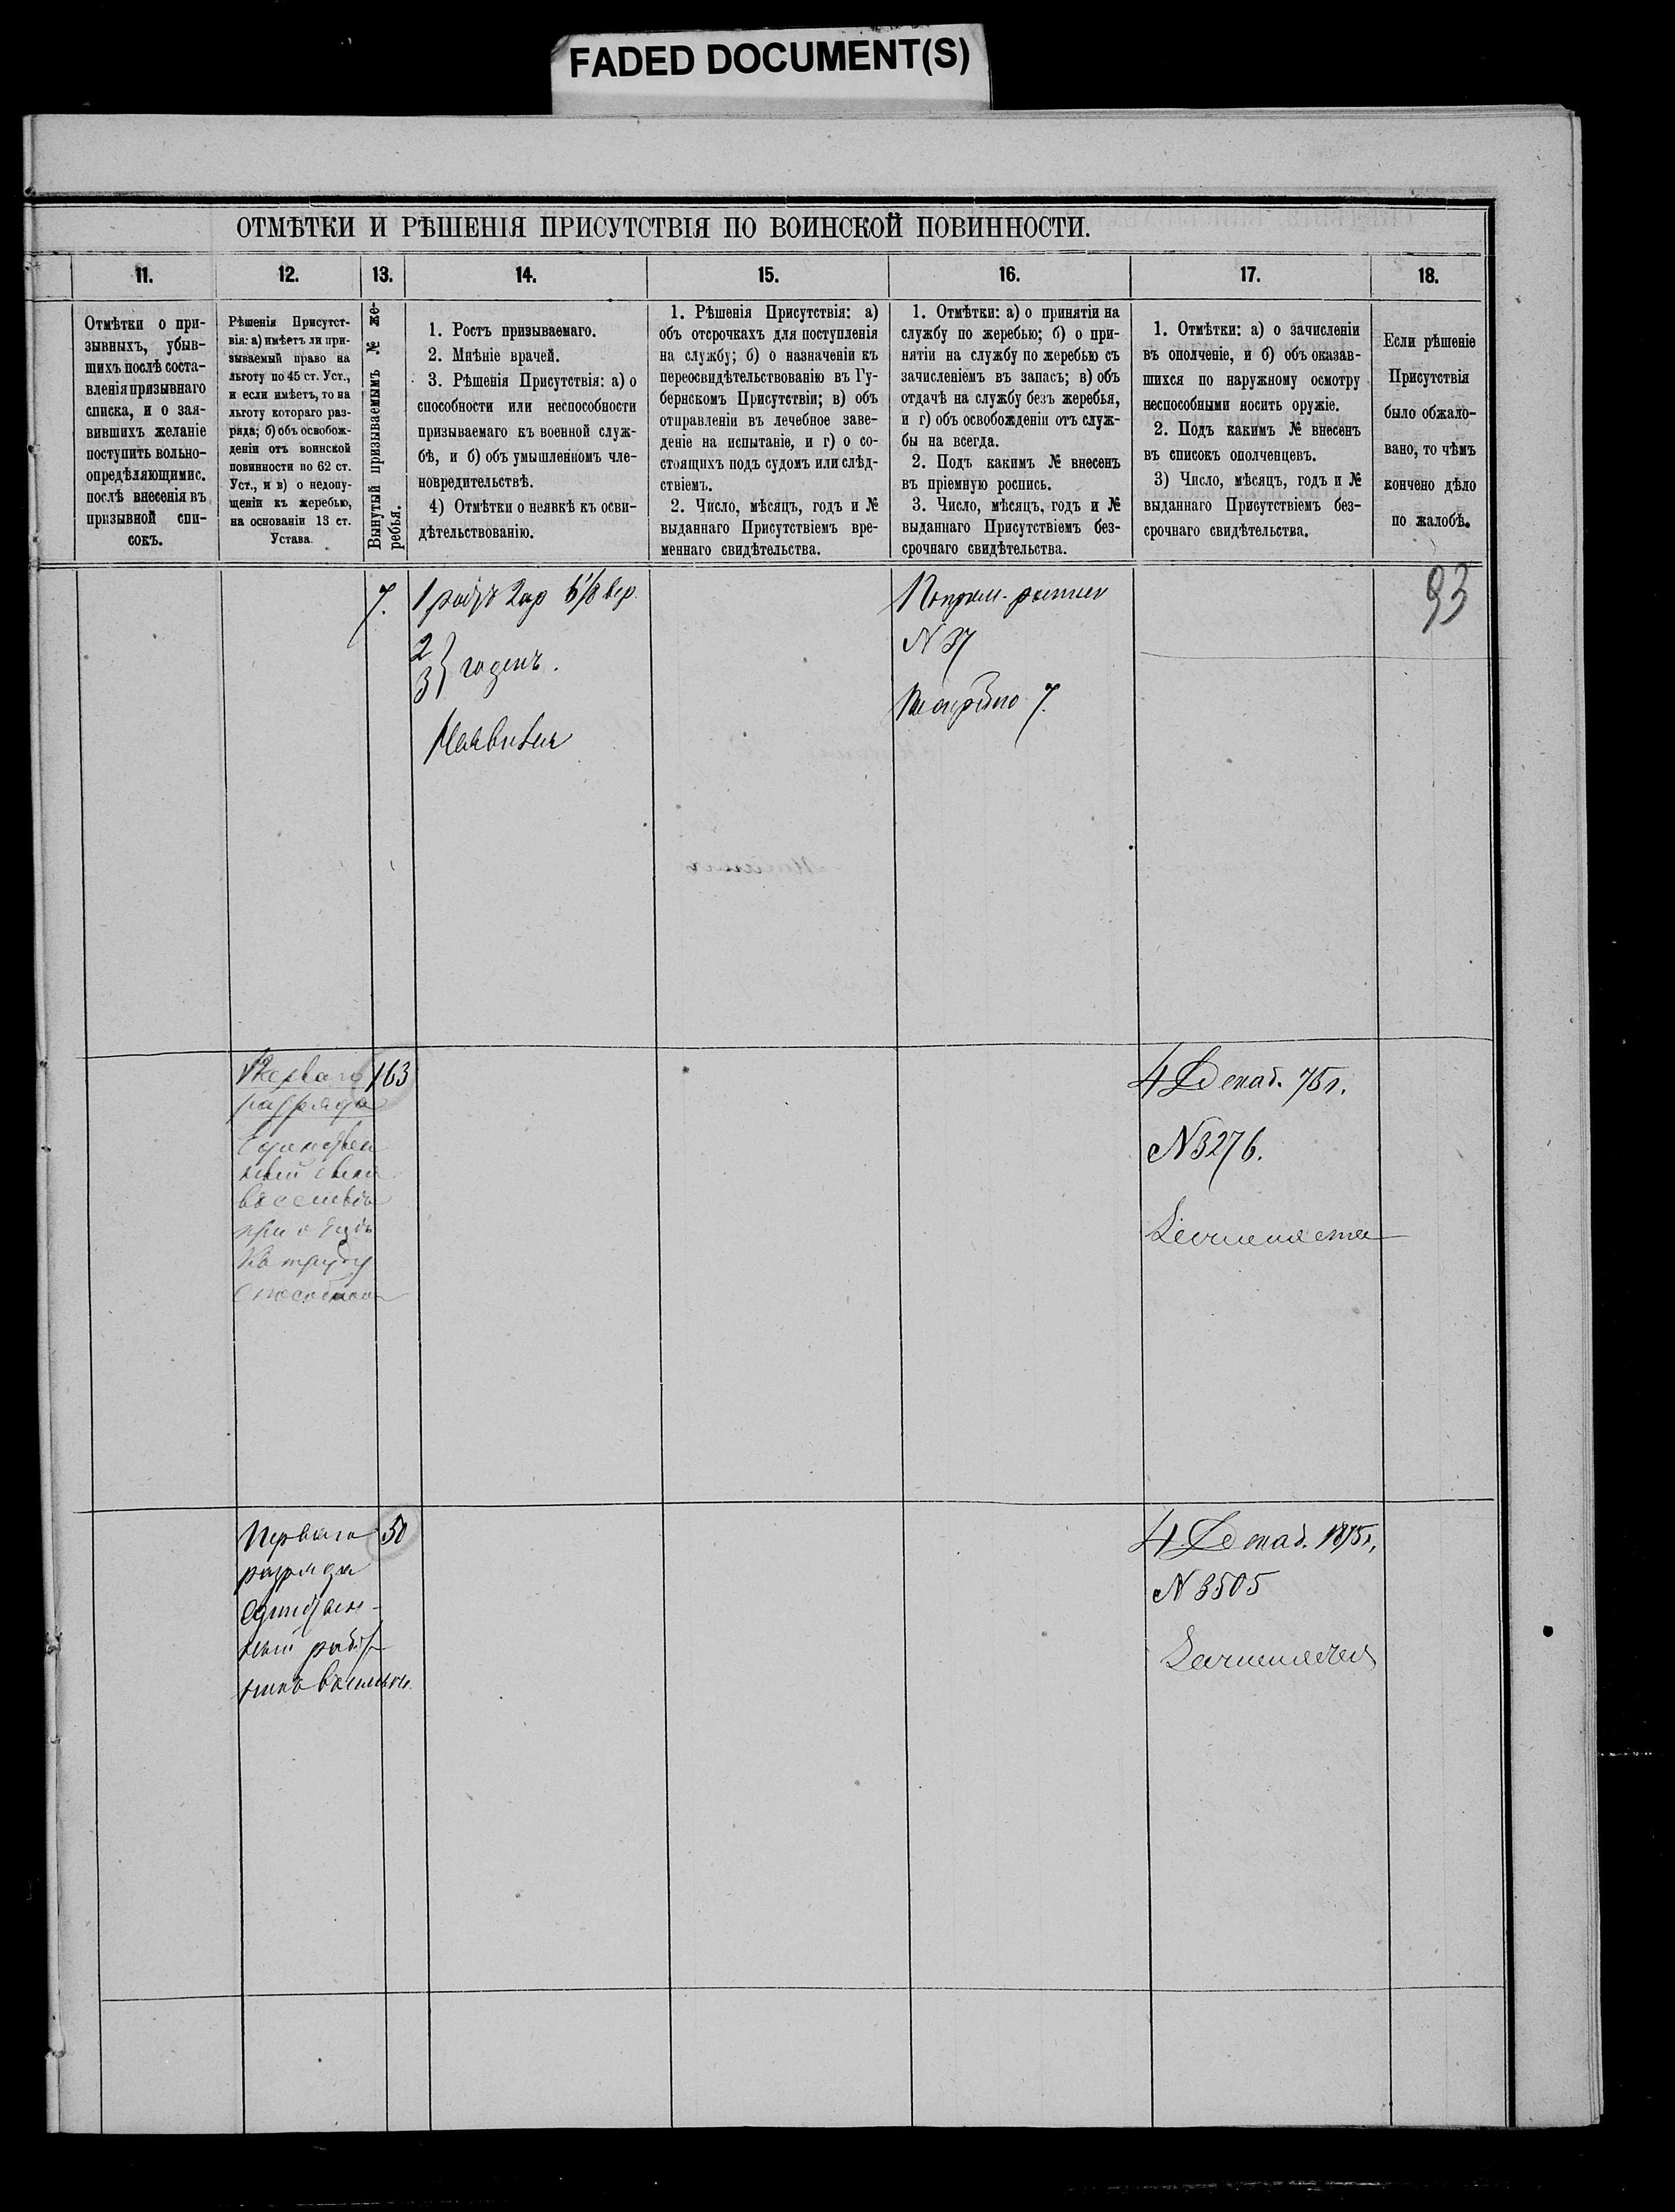 FADED DOCUMENT(S)
ОТМѢТКИ И РѢШЕНІЯ ПРИСУТСТВІЯ ПО ВОИНСКОЙ ПОВИННОСТИ.
11.
12.
13.
14.
15.
16.
17.
18.
Отмѣтки о при-
зывныхъ, убыв-
шихъ послѣ соста-
вленія призывнаго
списка, и о зая-
вившихъ желаніе
поступить вольно-
опредѣляющимис.
послѣ внесенія въ
призывной спи-
сокъ.
Рѣшенія Присутст-
вія: а) имѣетъ ли при-
зываемый право на
льготу по 45 ст. Уст.,
и если имѣетъ, то на
льготу котораго раз-
ряда; б) объ освобож-
деніи отъ воинской
повинности по 62 ст.
Уст., и в) о недопу-
щеніи къ жеребью,
на основаніи 13 ст.
Устава
Вынутый призываемымъ № же-
ребья.
1. Ростъ призываемаго.
2. Мнѣніе врачей.
3. Рѣшенія Присутствія: а) о
способности или неспособности
призываемаго къ военной служ-
бѣ, и б) объ умышленномъ чле-
новредительствѣ.
4) Отмѣтки о неявкѣ къ осви-
дѣтельствованію.
1. Рѣшенія Присутствія: а)
объ отсрочкахъ для поступленія
на службу; б) о назначеніи къ
переосвидѣтельствованію въ Гу-
бернскомъ Присутствіи; в) объ
отправленіи въ лечебное заве-
деніе на испытаніе, и г) о со-
стоящихъ подъ судомъ или слѣд-
ствіемъ.
2. Число, мѣсяцъ, годъ и №
выданнаго Присутствіемъ вре-
меннаго свидѣтельства.
1. Отмѣтки: а) о принятіи на
службу по жеребью; б) о при-
нятіи на службу по жеребью съ
зачисленіемъ въ запасъ; в) объ
отдачѣ на службу безъ жеребья,
и г) объ освобожденіи отъ служ-
бы на всегда.
2. Подъ какимъ № внесенъ
въ пріемную роспись.
3. Число, мѣсяцъ, годъ и №
выданнаго Присутствіемъ без-
срочнаго свидѣтельства.
1. Отмѣтки: а) о зачисленіи
въ ополченіе, и б) объ оказав-
шихся по наружному осмотру
неспособными носить оружіе.
2. Подъ какимъ № внесенъ
въ списокъ ополченцевъ.
3) Число, мѣсяцъ, годъ и №
выданнаго Присутствіемъ без-
срочнаго свидѣтельства.
Если рѣшеніе
Присутствія
было обжало-
вано, то чѣмъ
кончено дѣло
по жалобѣ.
7.
1 2 ар 6 1/8 вер.
2
3} годенъ.
N 37
7.
93
Перваго
разряда
Единствен
ный сынъ
въ семьѣ
при отцѣ
къ труду
способномъ
163
4 Декаб. 75 г.
N 3276.
Перваго
разряда
Единствен-
ный работ
никъ въ семьѣ
50
4 Декаб. 1875 г.
N 3505